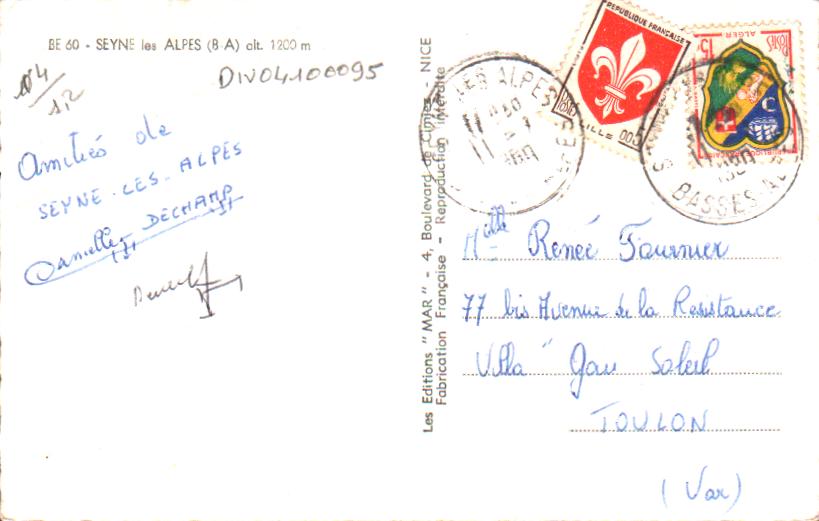 BE 60 - SEYNE les ALPES (B-A) alt. 1200 m
DIV04100095
04
1,2
Amitiés de
SEYNE-LES-ALPES
Danielle DECHAMP
Les Editions "MAR" - 4, Boulevard de Cimiez - NICE
Fabrication Française - Reproduction Interdite
REPUBLIQUE FRANÇAISE
POSTES
LILLE 005
POSTES
ALGER
15
REPUBLIQUE FRANÇAISE
LES ALPES
BASSES-AL
Melle Renée Fournier
77 bis Avenue de la Resistance
Villa "Gai Soleil
TOULON
(Var)